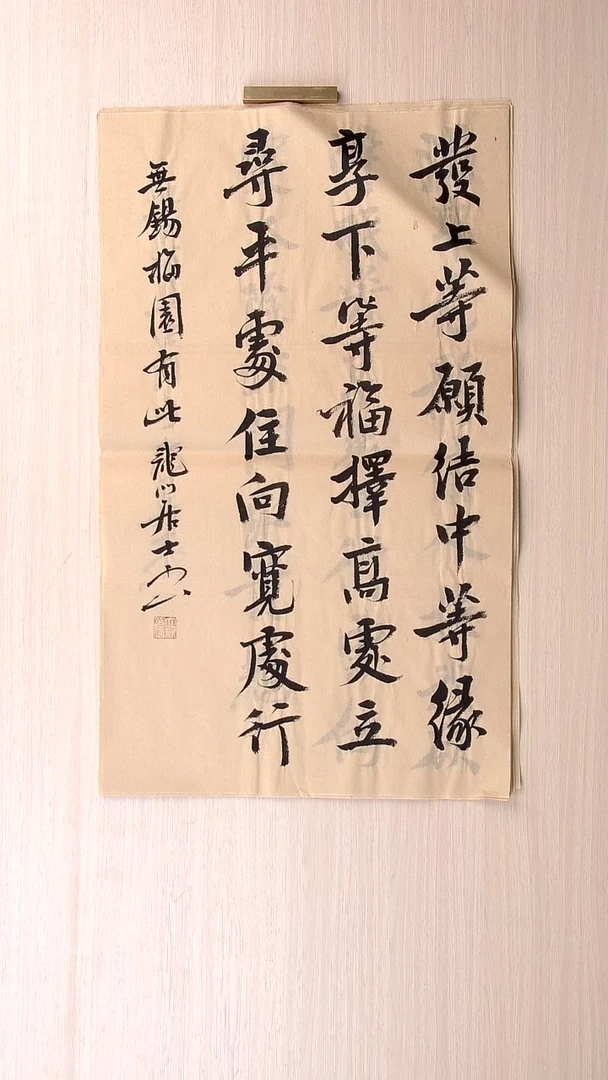 發上等願結中等緣
享下等福擇高處立
尋平處住向寬處行
無錫梅園有此龍川居士